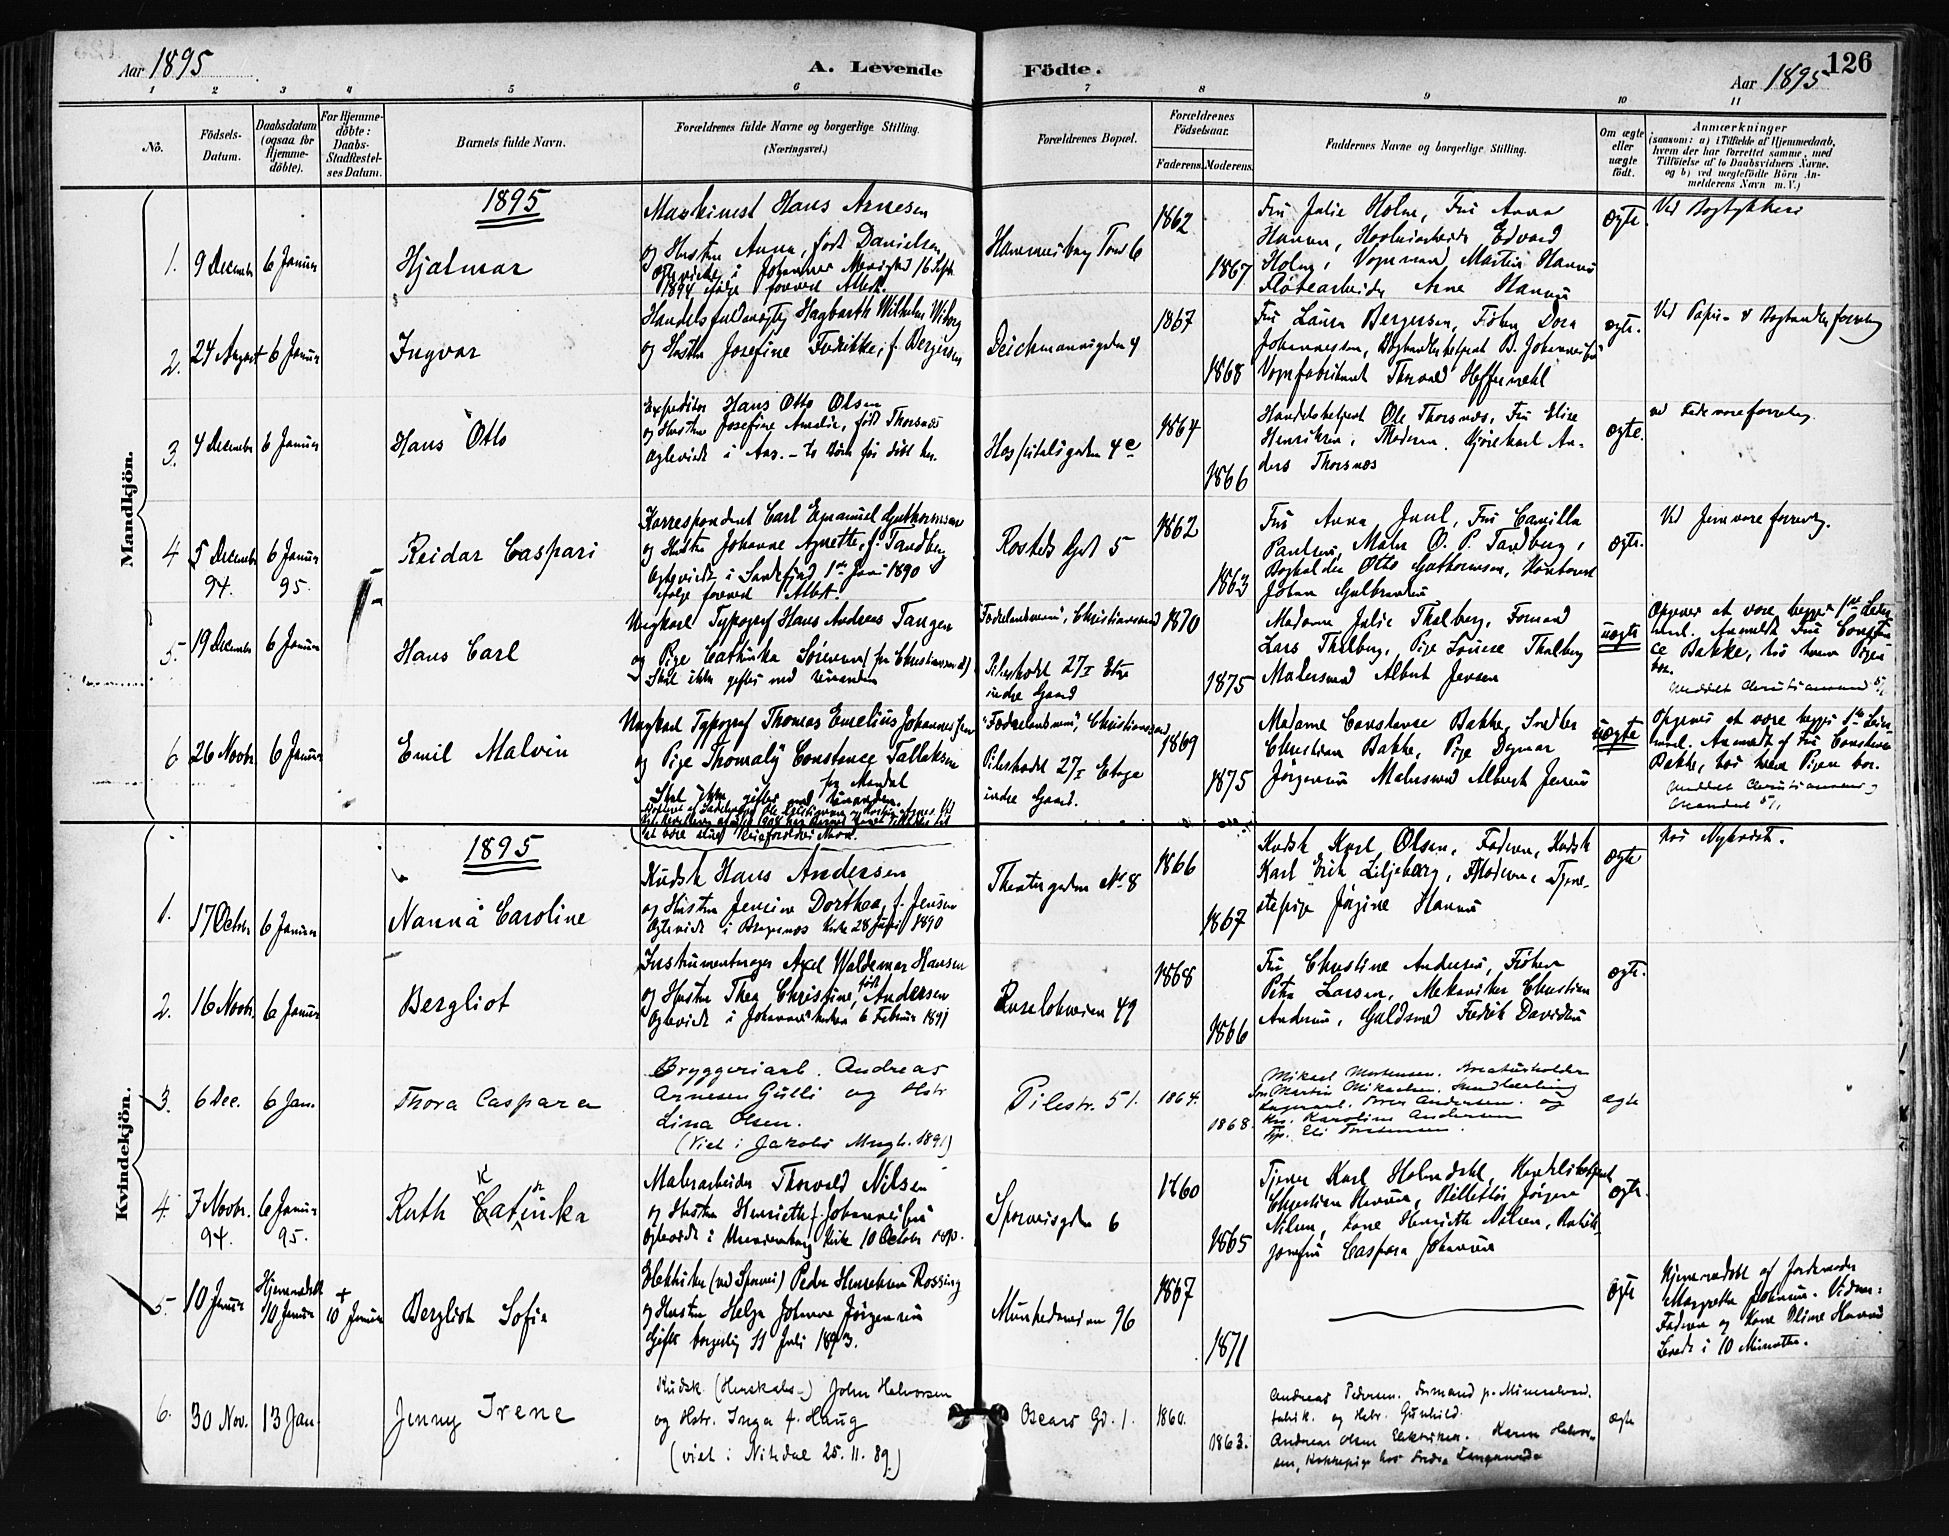 Aar 1895
A. Levende Födte.
Aar 1895
126
1 2 3 4 5 6 7 8 9 10 11
No.
Födsels-
Datum.
Daabsdatum
(ogsaa for
Hjemme-
döbte).
For Hjemme-
döbte:
Daabs-
Stadfæstel-
ses Datum.
Barnets fulde Navn.
Forældrenes fulde Navne og borgerlige Stilling.
(Næringsvei.)
Forældrenes Bopæl.
Forældrenes
Födselsaar.
Faderens.
Moderens.
Faddernes Navne og borgerlige Stilling.
Om ægte
eller
uægte
födt.
Anmærkninger
(saasom: a) i Tilfælde af Hjemmedaab,
hvem der har forrettet samme, med
Tilföielse af to Daabsvidners Navne.
og b) ved uægtefödte Börn An-
melderens Navn m. V.)
Mandkjön.
1895
1. 9 December 6 Januar
Hjalmar
Maskinist Hans Arnesen
og Hustru Anna, født Danielsen
1894 ifølge forevist Attest.
Hammersborg Torv 6
1862
1867
Fru Julie Holm, Fru Anna
Hansen, Edvard
Holm, Martin Hansen
Arne Hansen
Ægte
2. 24 August 6 Januar
Ingvar
Handelsfuldmægtig Hagbarth Wilhelm Wiborg
og Hustru Josefine Fredrikke, f. Bergersen
Deichmannsgaden 4
1867
1868
Fru Laura Bergersen, Frøken Dora
Johannessen, B. Johannessen
Vognfabrikant Thorvald
ægte.
Ved Papir- & Boghandlerforretning
3. 4 December 6 Januar
Hans Otto
Expeditør Hans Otto Olsen
og Hustru Josefine Amalie, født Thorsnæs
Ægteviede i Aas. – to Børn før døbt her.
Hospitalsgaden 4c
1864
1866
Handelsbetjent Ole Thorsnæs, Fru Elise
Henriksen, Moderen, An-
ders Thorsnæs
ægte.
4 5 December 6 Januar
94. 95.
Reidar Caspari
Korrespondent Carl Emanuel Guthormsen
og Hustru Johanne Agnette, f. Tandberg
Ægteviede i Sandefjord 1ste Juni 1890
ifølge forevist Attest.
Rosteds Gd 5
1862
1863
Fru Anna Juul, Fru Camilla
Paulsen, Maler O. P. Tandberg,
Bogholder Otto Guthormsen, Kontorist
Johan Gulbrandsen
ægte.
Ved Jernvareforretng.
5. 19 December 6 Januar
Hans Carl
Ungkarl Typograf Hans Andreas Tangen
og Pige Cathinka Sørensen (fra Christianssand)
Skal ikke giftes med hinanden
"Fædrelandsvennen", Christianssand
Pilestrædet 27 I Etage
indre Gaard
1870
1875
Madame Julie Thalberg, Formand
Lars Thalberg, Pige Louise Thalberg
Malersvend Albert Jensen
uægte
Opgives at være begges 1ste Leier-
maal. Anmeldt Fru Constan-
ce Bakke, hos hvem Pigen
bor.
Meddelt Christianssand
6 26 Novbr. 6 Januar
Emil Malvin
Ungkarl Typograf Thomas Emelius Johannessen
og Pige Thomaly Constance Tallaksen
fra Mandal
Skal ikke giftes med hinanden.
"Fædrelandsvennen", Christianssand
Pilestrædet 27 I Etage
indre Gaard.
1869
1875
Madame Constanse Bakke, Snedker
Christian Bakke, Pige Dagmar
Jörgensen Malersvend Albert Jensen
uægte
Opgives at være begges 1ste Leier-
maal. Anmeldt af Fru Constanse
Bakke, hos hvem Pigen bor.
Meddelt Christianssand og
Mandal
Kvindekjön.
1895
1. 17 Octbr 6 Januar
Nanna Caroline
Kudsk Hans Andersen
og Hustru Jensine Dorthea, f. Jensen
Ægteviede i Bragernæs Kirke 28 Juni 1890
Theatergaden No 8
1866
1867
Kudsk Karl Olsen, Faderen, Kudsk
Karl Erik Liljeberg, Moderen, Tjene-
stepige Jörgine Hansen
ægte
hos Nykvist.
2. 16 Novbr. 6 Januar
Bergliot
Instrumentmager Axel Waldemar Hansen
og Hustru Thea Christine, født Andersen
Ægteviede i Johannes kirken 6 Februar 1891
Roseloknveien 49
1868
1866
Fru Christine Andersen, Frøken
Petra Larsen, Mekaniker Christian
Andersen, Guldsmed Fredrik Davidsen
ægte.
3. 6 Dec. 6 Jan.
Thora Caspara
Bryggeriarb. Andreas
Arnesen Gulli og Hstr.
Lina Olsen.
(Viet i Jakobs Mngh. 1891)
Pilestr. 51.
1864.
1868.
Mikael Mortensen.
Martin Mikaelsen.
Andersen. og
Karoline Andersen
Eli Torstensen.
ægte
4. 7 Novbr. 6 Januar
94. 95.
Ruth Catinka
K h
Malerarbeider Thorvald Nilsen
og Hustru Henriette f. Johannessen
Ægteviede i Uranienborg Kirke 10 October 1890.
Sporveisgaden 6
1860
1865
Tjener Karl Holmdahl, Handelsbetjent
Christian Hansen, Billettør Jörgen
Nilsen, Kone Henriette Nilsen,
Caspara Johansen
ægte.
5. 10 Januar Hjemmedøbt
10 Januar
+
10 Januar
Bergliot Sofie
Elektriker (ved Sporvei) Peder Henriksen Rossing
og Hustru Helga Johanne Jørgensen
Gifte borgerlig 11 Juli 1893.
Munkedamsveien 96
1867
1871
ægte
Hjemmedøbt af Jordemoder
Margrethe Johansen. Vidner:
Faderen og Kone Oline Hansen
Levede i 10 Minutter.
6. 30 Nov. 13 Jan.
Jenny Irene
Kudsk (Herskabs-) John Halvorsen
og Hstr. Inga f. Haug
(viet i Nitedal 25. 11. 89.)
Oscars Gd. 1.
1860.
1863.
Andreas Pedersen. Formand p. Mineralvand-
fabrik. og Hstr. Gunhild.
Andreas Olsen Elektriker. Karen Halvor-
sen, Kokkepige hos
ægte